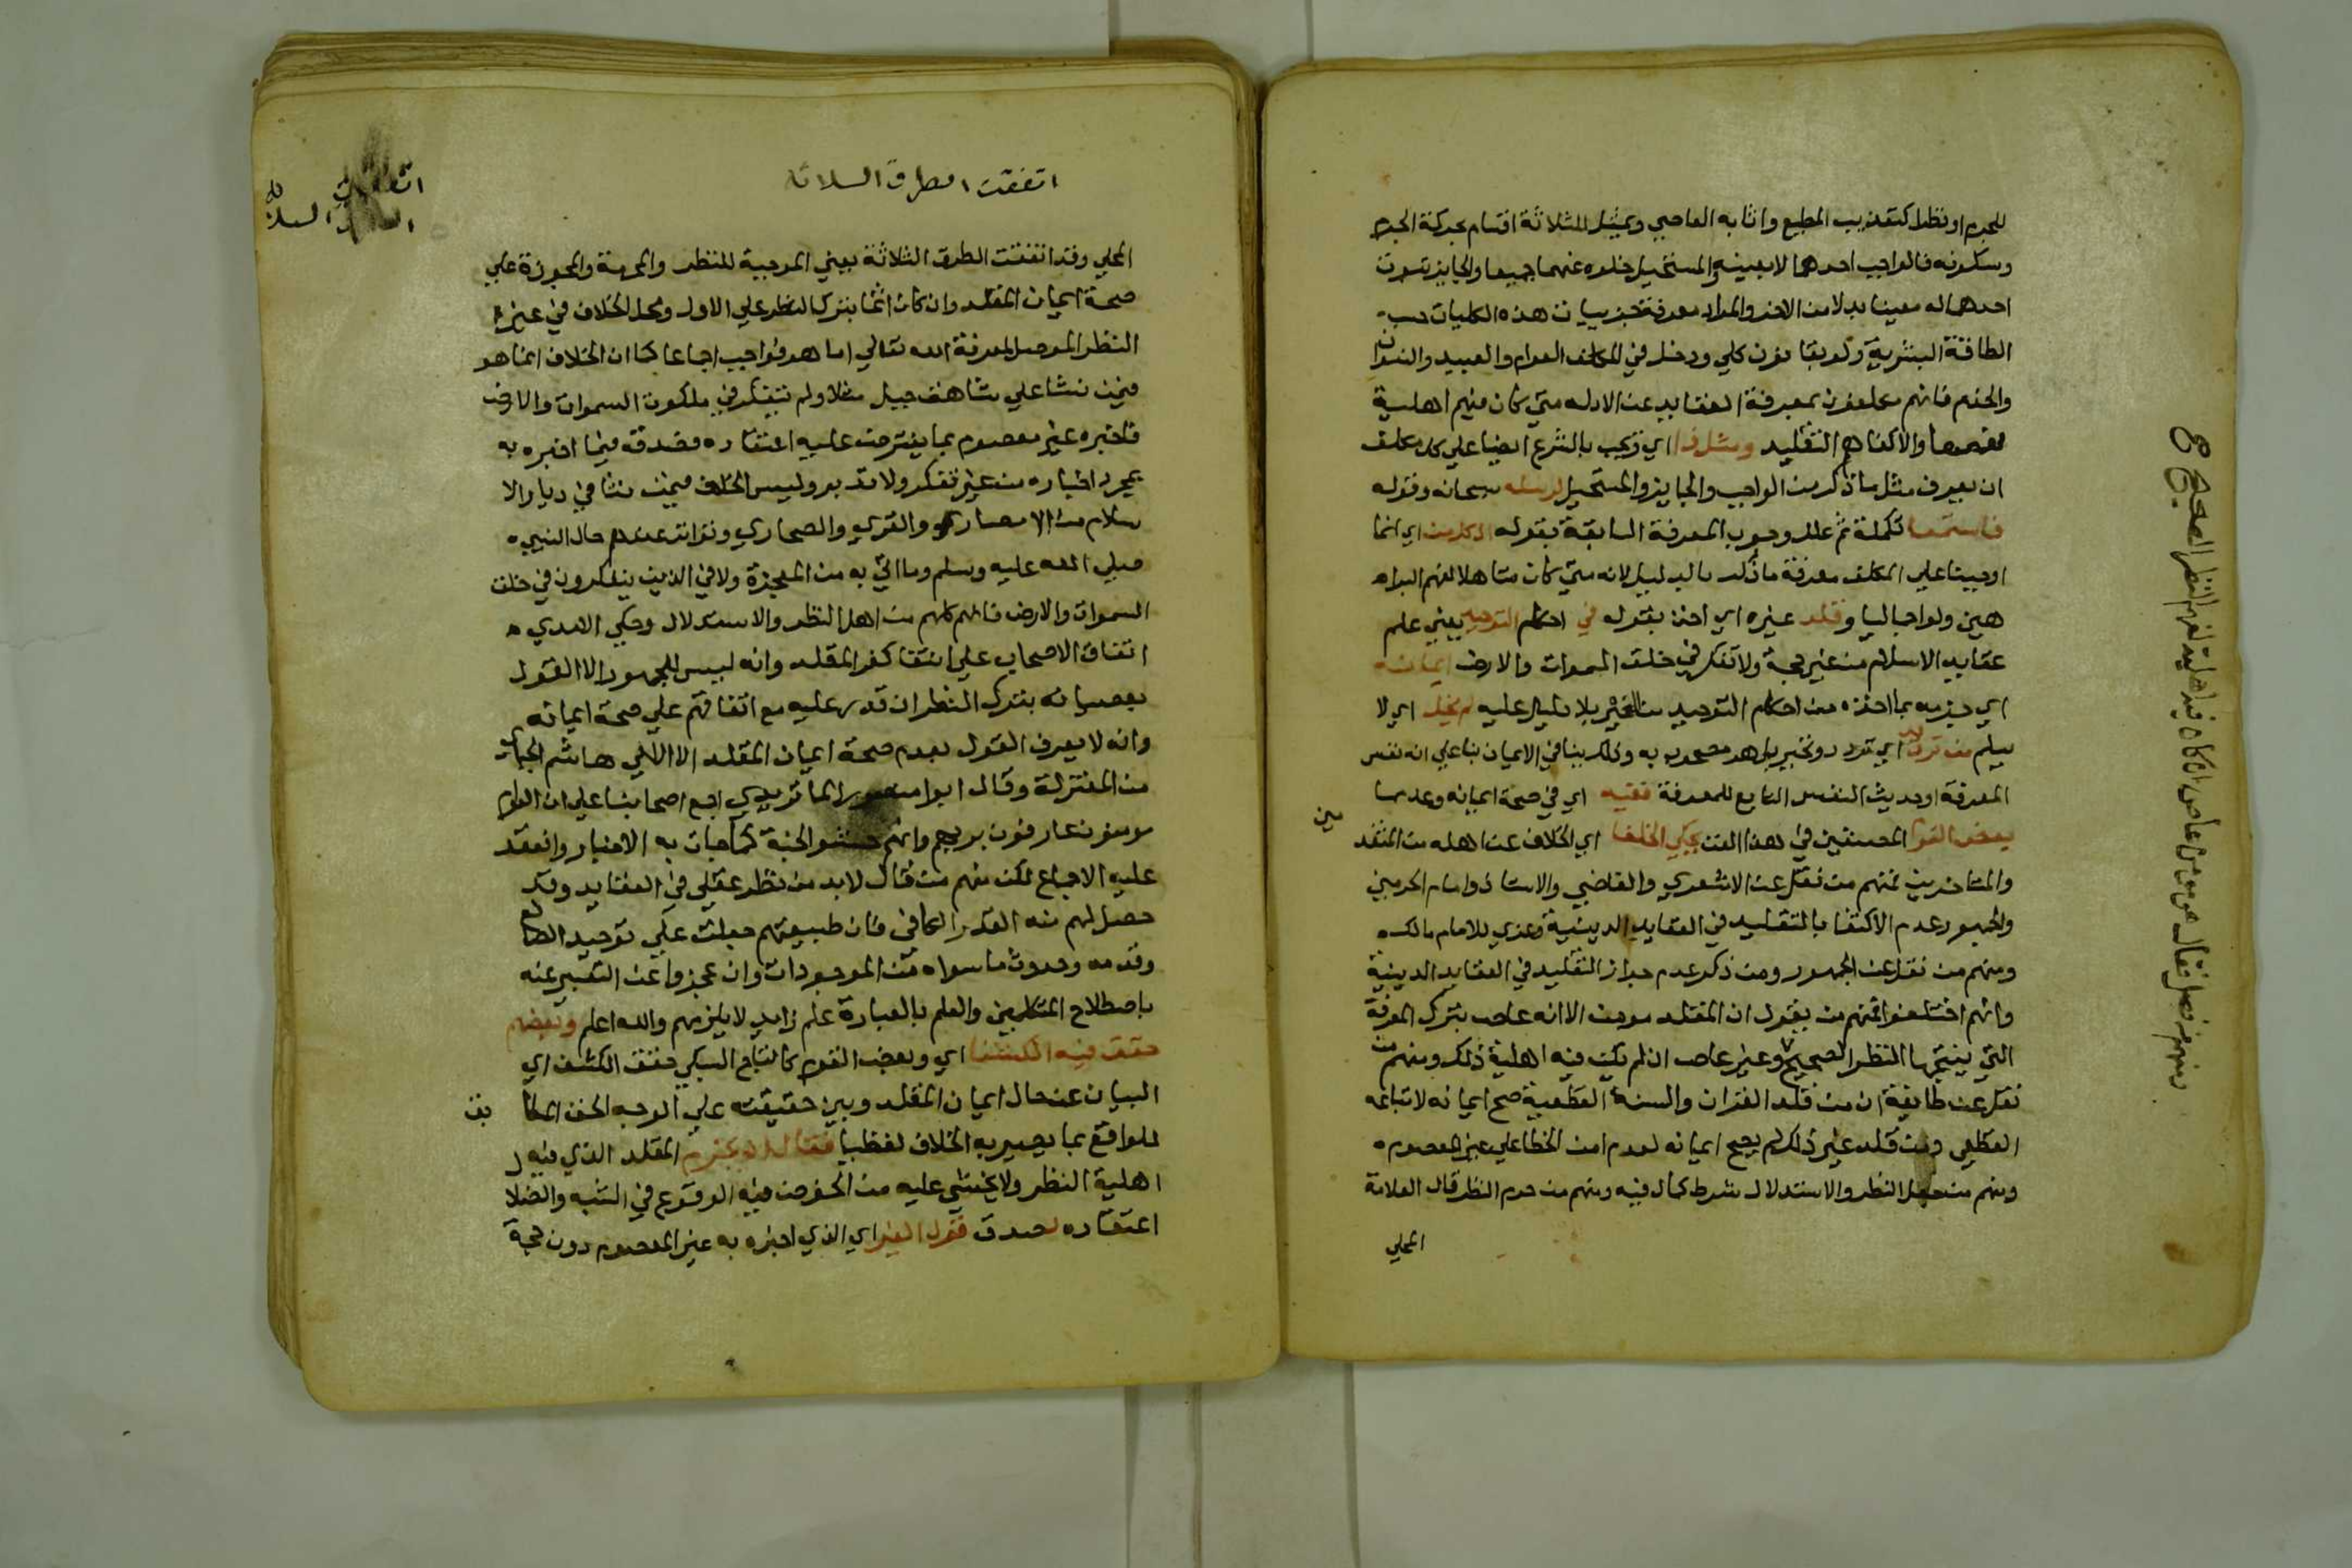 للجرم او نظرا كتعذيب المطيع واثابه العاصي ويمثل للثلاثة اقسام بحركة الجرم
وسكونه فالواجب احدهما لا بعينه والمستحيل خلوه عنهما جميعا والجايز ثبوت
احدهما له معينا بدلا من الاخر والمراد معرفة جزييات هذه الكليات حسب
الطاقة البشرية ولو بقانون كلي ودخل في المكلف العوام والعبيد والنسوان
والخدم فانهم مكلفون بمعرفة العقايد عن الادله متي كان فيهم اهلية
فهمها والا كفاهم التقليد ومثل ذا اي ويجب بالشرع ايضا علي كل مكلف
ان يعرف مثل ما ذكر من الواجب والجايز والمستحيل لرسله سبحانه وقوله
فاستمعا تكملة ثم علل وجوب المعرفة السابقة بقوله اذ كل من اي انما
اوجبنا علي المكلف معرفة ما ذكر بالدليل لانه متي كان متاهلا لفهم البرا
هين ولو اجماليا وقلد غيره اي اخذ بقوله في احكام التوحيد يعني علم
عقايد الاسلام من غير حجة ولا تفكر في خلق السموات والارض ايمانه
اي جزمه بما اخذه من احكام التوحيد من الغير بلا دليل عليه لم يخل اي لا
يسلم من ترديد اي تردد وتحير بل هو مصحوب به وذلك ينافي الايمان بنا علي انه نفس
المعرفة او حديث النفس التابع للمعرفة ففيه اي في صحة ايمانه وعدمها
بعض القوم المصنفين في هذا الفن يحكي الخلفا اي الخلاف عن اهله من المتقد
مين
والمتاخرين فمنهم من نقل عن الاشعري والقاضي والاستاذ وامام الحرمين
والجمهور عدم الاكتفا بالتقليد في العقايد الدينية وعزي للامام مالك
ومنهم من نقل عن الجمهور ومن ذكر عدم جواز التقليد في العقايد الدينية
وانهم اختلفوا فمنهم من يقول ان المقلد مومن الا انه عاص بترك المعرفة
التي ينتجها النظر الصحيح وغير عاص ان لم يكن فيه اهلية ذلك ومنهم من
نقل عن طايفة ان من قلد القران والسنة القطعية صح ايمانه لاتباعه
القطعي ومن قلد غير ذلك لم يصح ايمانه لعدم امن الخطا علي غير المعصوم
ومنهم من جعل النظر والاستدلال شرط كمال فيه ومنهم من حرم النظر قال العلامة
المحلي
ومنهم من فصل فقال هو مومن عاص ان كان فيه اهلية لفهم النظر الصحيح
اتفقت الطرق الثلاثه
المحلي وقد اتفقت الطرق الثلاثة يعني الموجبة للنظر والمحرمة والمجوزة علي
صحة ايمان المقلد وان كان اثما بترك النظر علي الاول ومحل الخلاف في غير
النظر الموصل لمعرفة الله تعالي اما هو فواجب اجماعا كما ان الخلاف انما هو
فيمن نشا علي شاهق جبل مثلا ولم يتفكر في ملكوت السموات والارض
فاخبره غير معصوم بما يفترض عليه اعتقاده فصدقه فيما اخبره به
بمجرد اخباره من غير تفكر ولا تدبر وليس الخلاف فيمن نشا في ديار الا
سلام من الامصار والقري والصحاري وتواتر عندهم حال النبي
صلي الله عليه وسلم وما اتي به من المعجزة ولا في الذين يتفكرون في خلق
السموات والارض فانهم كلهم من اهل النظر والاستدلال وحكي الامدي
اتفاق الاصحاب علي انتفا كفر المقلد وانه ليس للجمهور الا القول
بعصيانه بترك النظر ان قدر عليه مع اتفاقهم علي صحة ايمانه
وانه لا يعرف القول بعدم صحة ايمان المقلد الا لابي هاشم الجباي
من المعتزلة وقال ابو منصور الماتريدي اجمع اصحابنا علي ان العوام
مومنون عارفون بربهم وانهم حشو الجنة كما جات به الاخبار وانعقد
عليه الاجماع لكن منهم من قال لا بد من نظر عقلي في العقايد وقد
حصل لهم منه القدر الكافي فان طبيعتهم جبلت علي توحيد الصانع
وقدمه وحدوث ما سواه من الموجودات وان عجزوا عن التعبير عنه
باصطلاح المتكلمين والعلم بالعبارة علم زايد لا يلزمهم والله اعلم وبعضهم
حقق فيه الكشفا اي وبعض القوم كالتاج السبكي حقق الكشف اي
البيان عن حال ايمان المقلد وبين حقيقته علي الوجه الحق المطا
بق
للواقع بما يصير به الخلاف لفظيا فقال ان يجزم المقلد الذي فيه
اهلية النظر ولا يخشي عليه من الخوض فيه الوقوع في الشبه والضلا
اعتقاده لصدق قول الغير اي الذي اخبره به غير المعصوم دون حجة